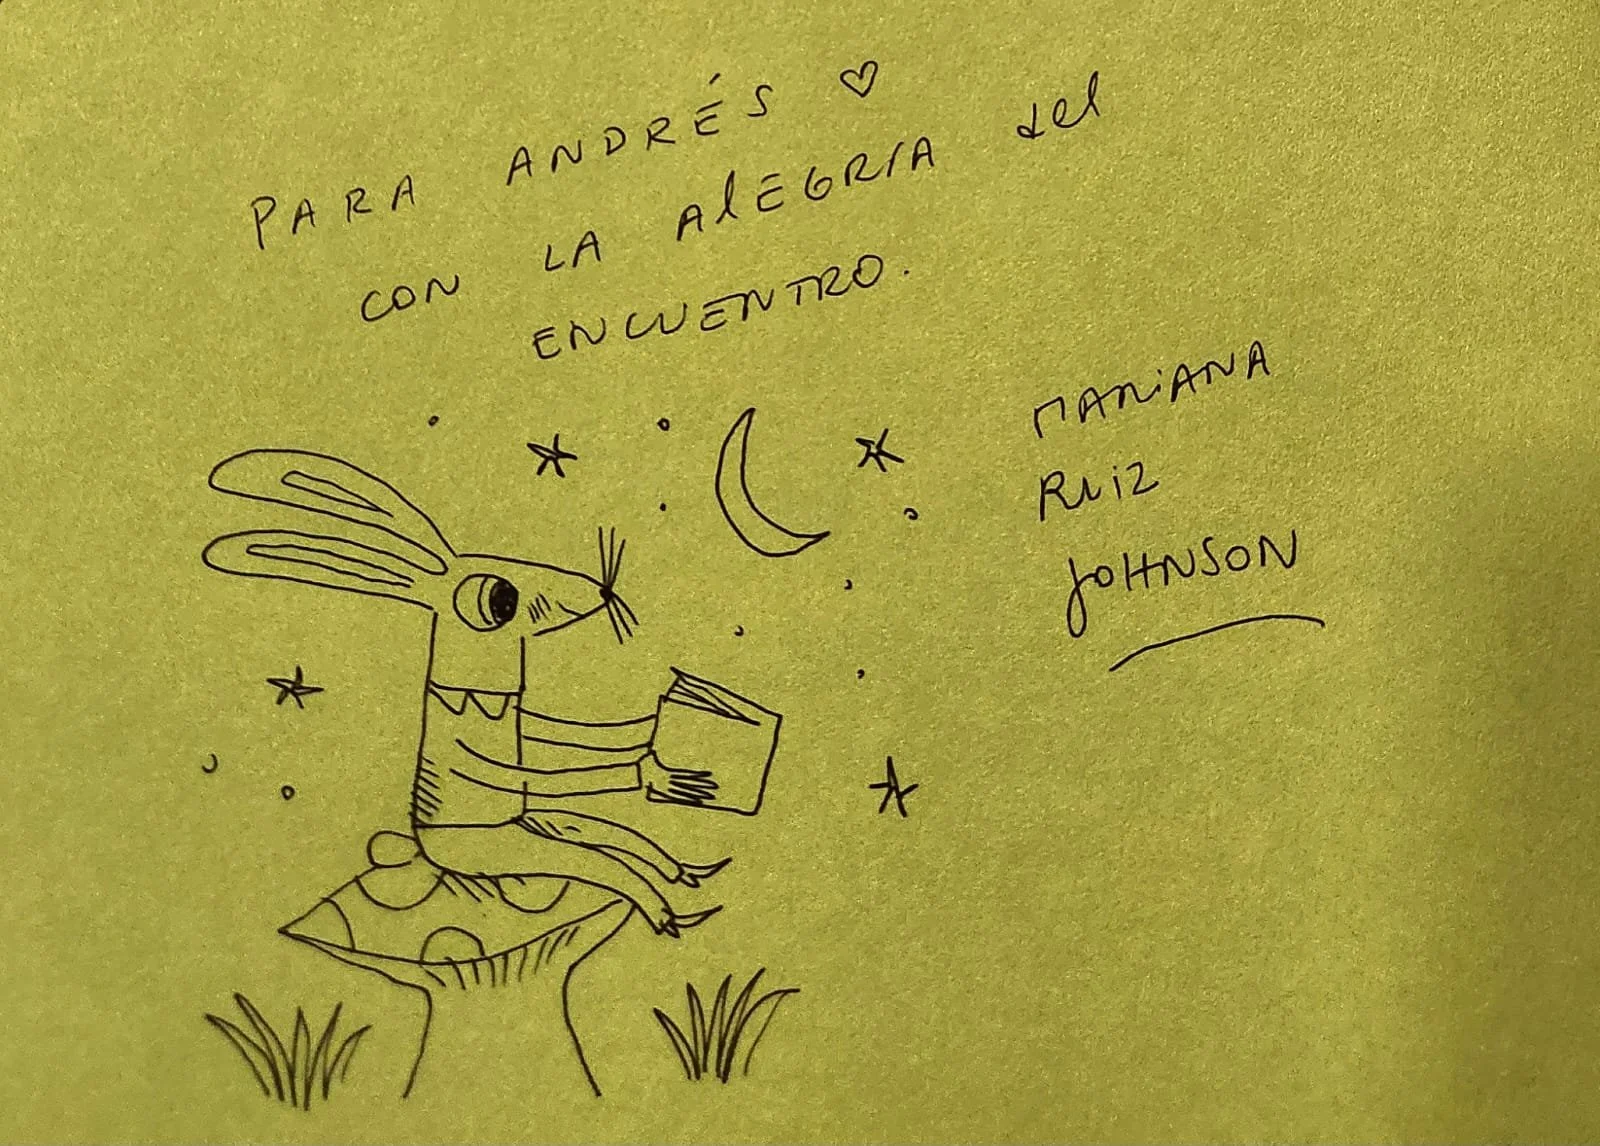 PARA ANDRÉS ♡
CON LA AlEGRIA del
ENCUENTRO.
MARiANA
RUiZ
JOHNSON